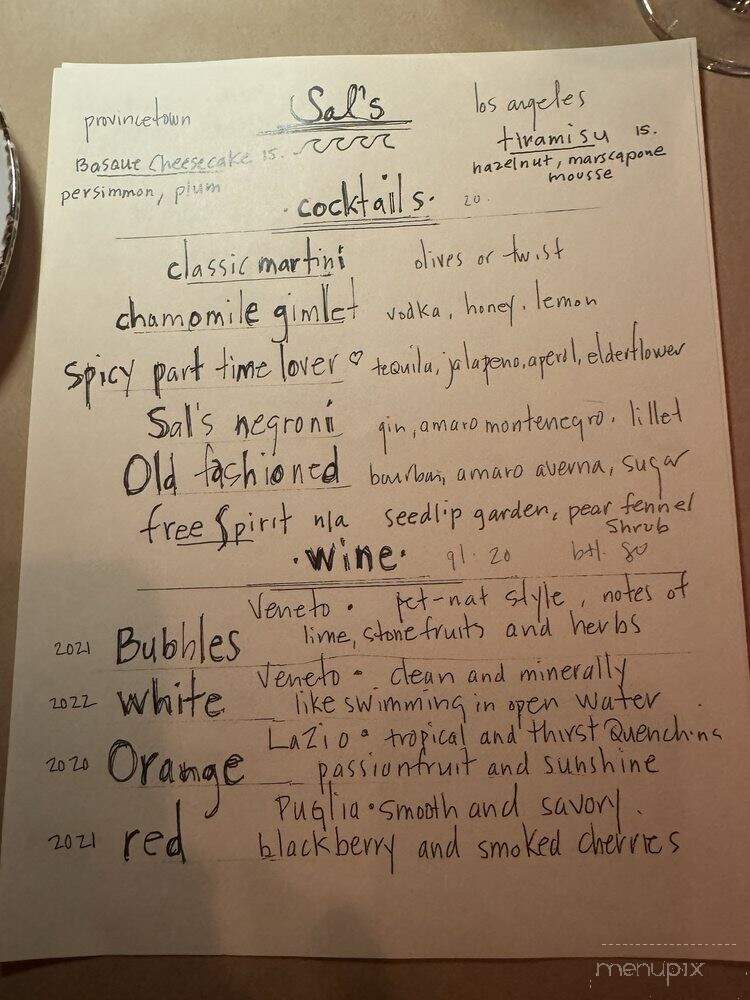 provincetown
Sal's
los angeles
Basque Cheesecake 15.
persimmon, plum
tiramisu 15.
hazelnut, marscapone
mousse
· cocktails · 20.
classic martini olives or twist
chamomile gimlet vodka, honey, lemon
Spicy part time lover ♡ tequila, jalapeno, aperol, elderflower
Sal's negroni gin, amaro montenegro, lillet
Old fashioned bourbon, amaro averna, sugar
free Spirit n/a seedlip garden, pear fennel
Shrub
· wine · gl. 20 btl. 80
Veneto • pet-nat style, notes of
2021 Bubbles lime, stonefruits and herbs
Veneto • clean and minerally
2022 white like swimming in open water
Lazio • tropical and thirst Quenching
2020 Orange passionfruit and sunshine
Puglia • smooth and savory.
2021 red blackberry and smoked cherries
menupix